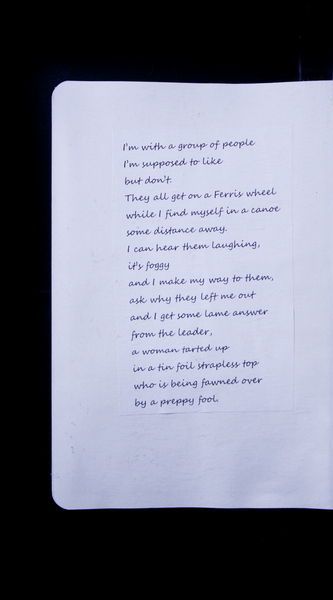 I'm with a group of people
I'm supposed to like
but don't.
They all get on a Ferris wheel
while I find myself in a canoe
some distance away.
I can hear them laughing,
it's foggy
and I make my way to them,
ask why they left me out
and I get some lame answer
from the leader,
a woman tarted up
in a tin foil strapless top
who is being fawned over
by a preppy fool.